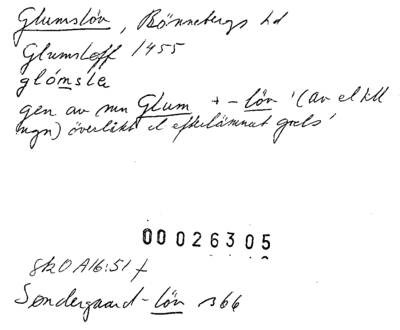 Glumslöv, Rönnebergs hd
Glumsleff 1455
glómsla
gen av mn Glum + -löv '(av el till
ngn) överlåtet el efterlämnat gods'
00026305
SkO A16:51 f
Søndergaard -löv s 66